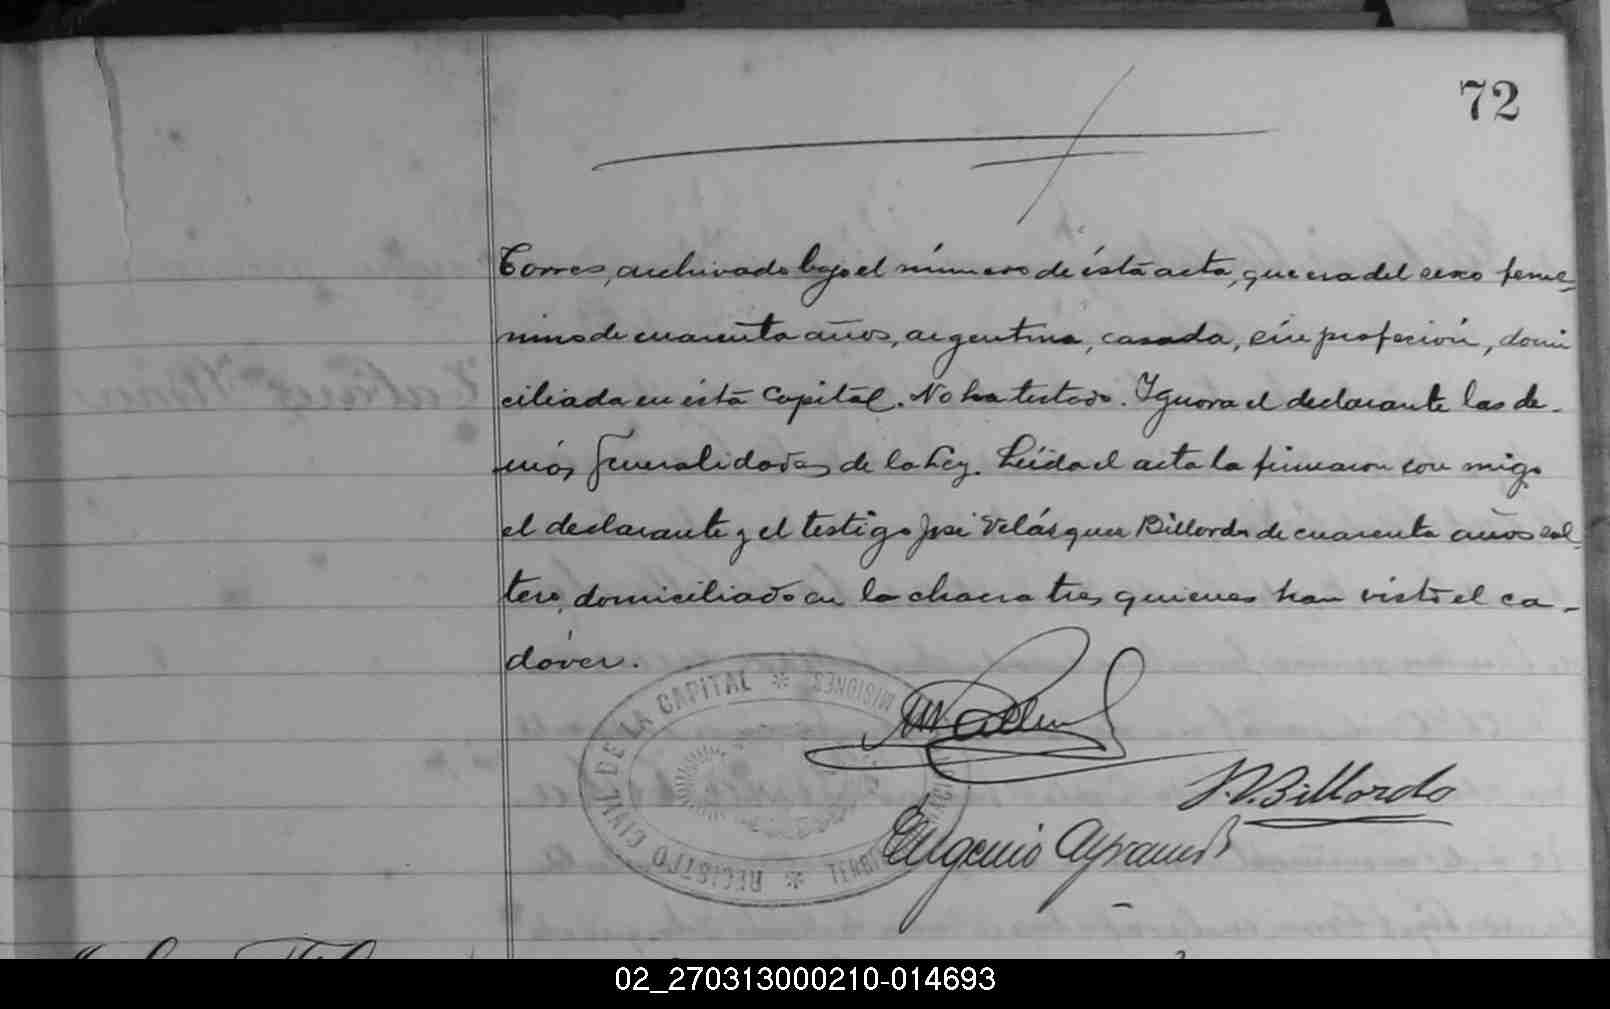 72
Torres, archivado bajo el número de ésta acta, que era del sexo feme-
nino de cuarenta años, argentina, casada, sin profesión, domi
ciliada en ésta Capital. No ha testado. Ignora el declarante las de-
más generalidades de la Ley. Leída el acta la firmaron con migo
el declarante y el testigo José Velásquez Billordo de cuarenta años sol-
tero, domiciliado en la chacra tres quienes han visto el ca-
dáver.
REGISTRO CIVIL DE LA CAPITAL * MISIONES *
J. V. Billordo
Eugenio
02_270313000210-014693